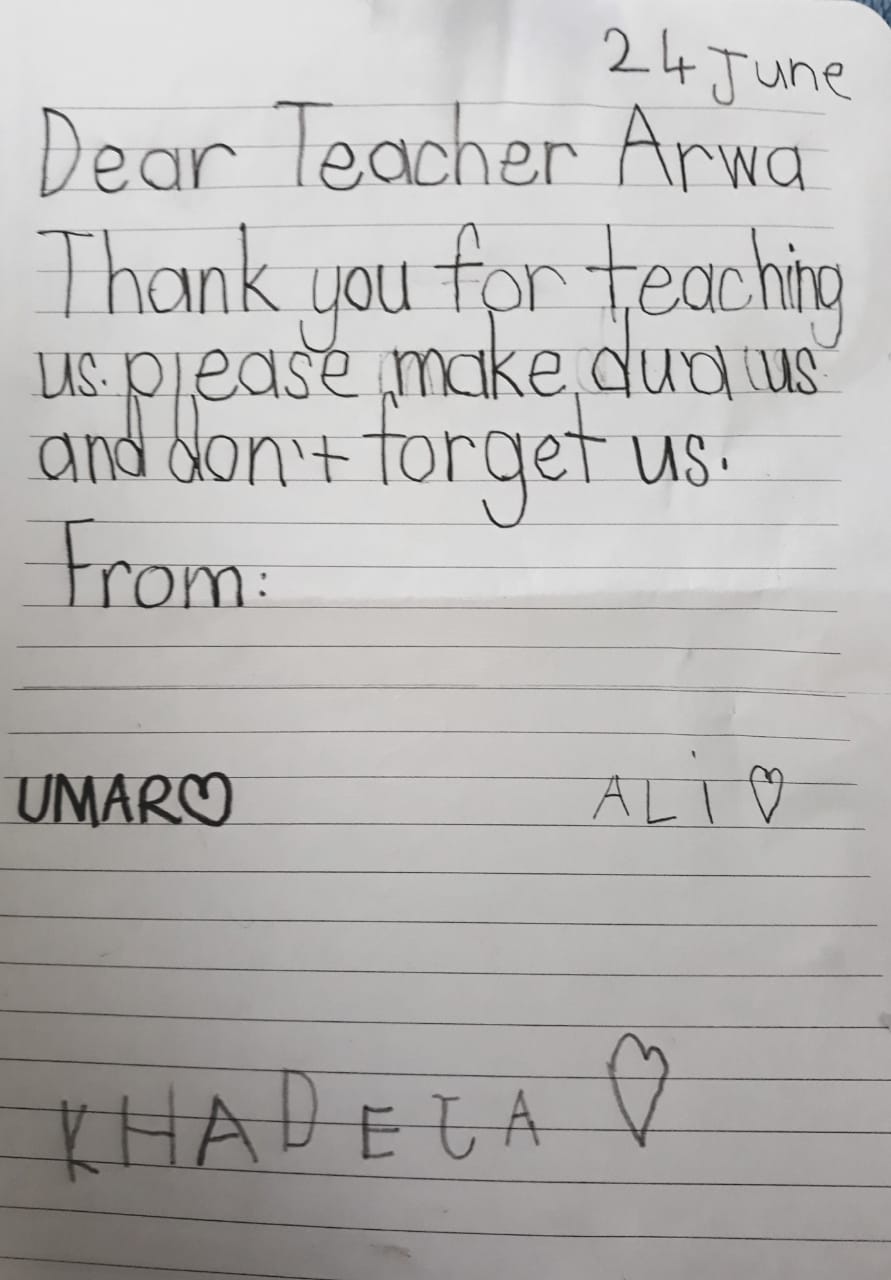 24 June
Dear Teacher Arwa
Thank you for teaching
us. please make dua us
and don't forget us.
From:
UMAR♡ ALi ♡
KHADEJA ♡